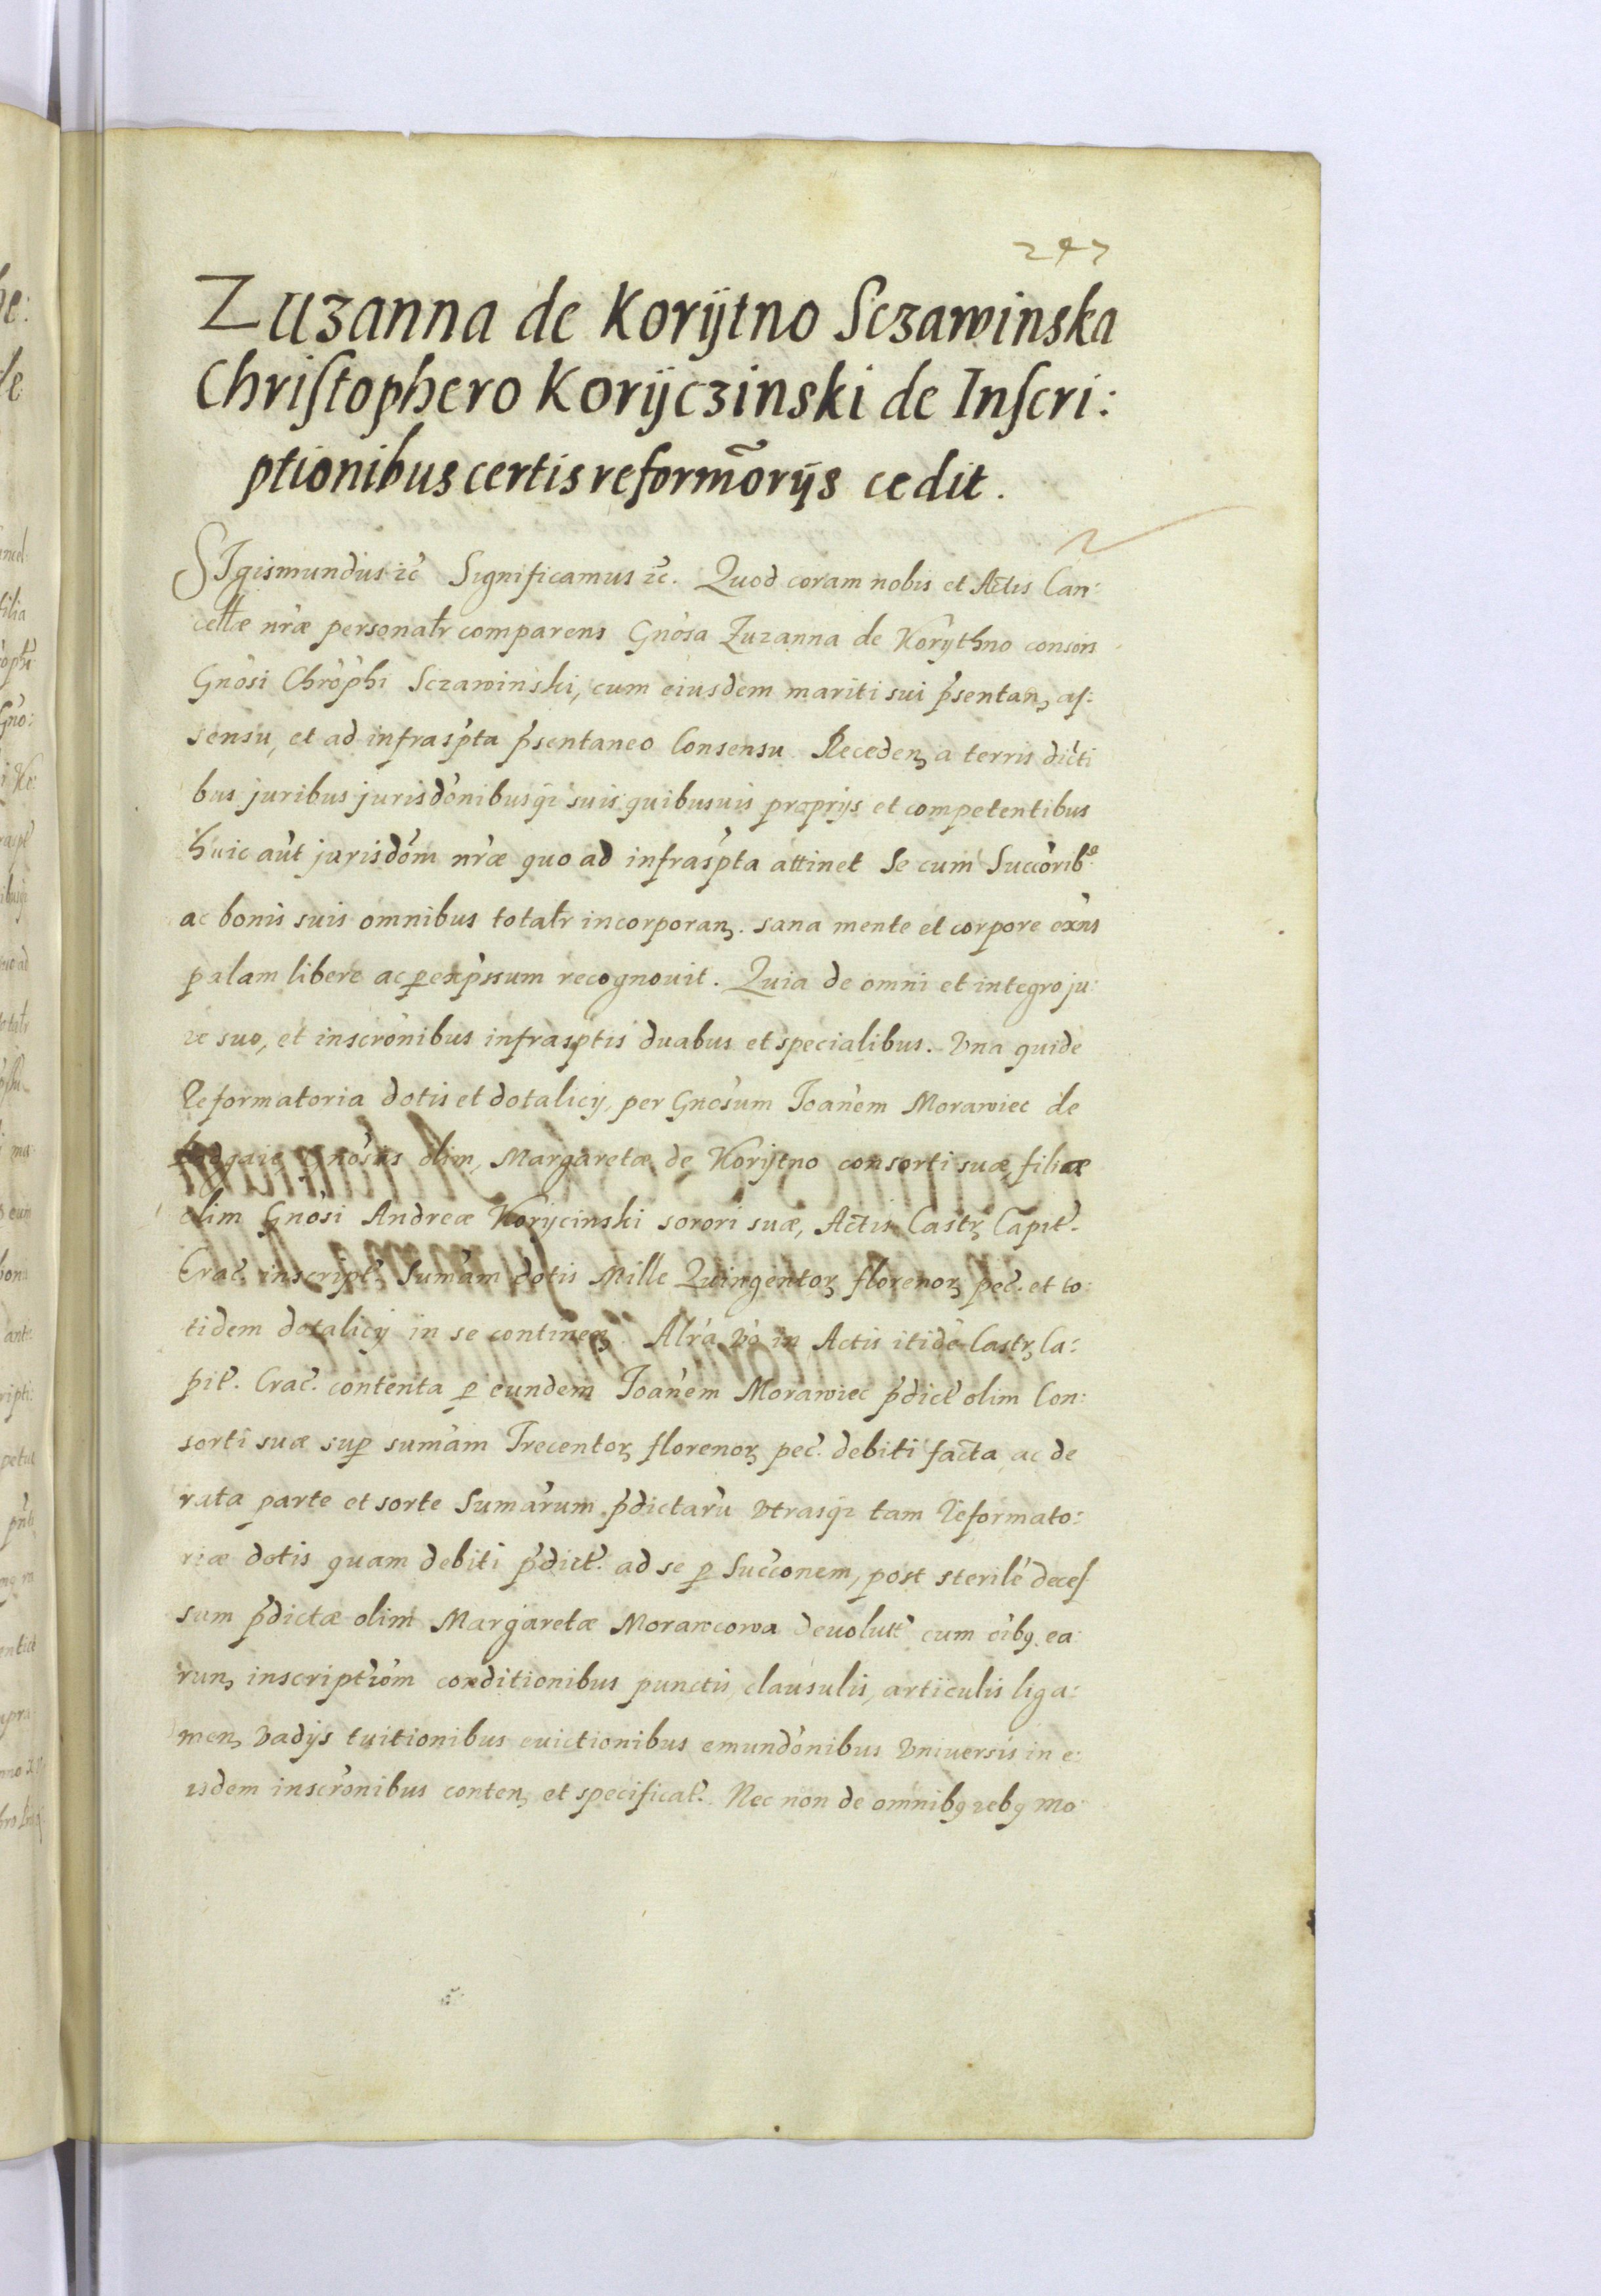 247
Zuzanna de Korijtno Sczawinska
Christophero Korijczinski de Inscri:
ptionibus certis reform̃orijs cedit.
SIgismundus ꝛc̃ Significamus ꝛc̃. Quod coram nobis et Actis Can:
cellæ nr̃æ personalr̃ comparens Gnõsa Zuzanna de Korythno consors
Gnõsi Chrõphi Sczawinski, cum eiusdem mariti sui p̃sentan, as:
sensu, et ad infrasp̃ta p̃sentaneo Consensu. Receden, a terris dicti
bus juribus jurisdõnibusq̢ suis quibusuis proprijs et competentibus
huic aũt jurisdõm nr̃æ quo ad infrasp̃ta attinet Se cum Succõrib9
ac bonis suis omnibus totalr̃ incorporan. sana mente et corpore exñs
palam libere ac ꝑ exp̃ssum recognouit. Quia de omni et integro ju:
re suo, et inscrõnibus infrasptis duabus et specialibus. Vna quidẽ
Reformatoria dotis et dotalicij, per Gnõsum Joañem Morawiec de
Gnõsis olim, Margaretæ de Korijtno consorti suæ filiæ
olim Gnõsi Andreæ Korijcinski sorori suæ, Actis Castr, Capit̃.
Crac̃. inscript̃. Sum̃am dotis Mille Quingentoꝝ florenoꝝ pec̃. et to:
tidem dotalicij in se continen. Alr̃a ṽo in Actis itidẽ Castr, Ca:
pit̃. Crac̃. contenta ꝑ eundem Joañem Morawiec p̃dict̃ olim Con:
sorti suæ suꝑ sum̃am Trecentoꝝ florenoꝝ pec̃. debiti facta, ac de
rata parte et sorte Sum̃arum p̃dictarũ vtrasq̢ tam Reformato:
riæ dotis quam debiti p̃dict̃. ad se ꝑ Succ̃onem, post sterilẽ deces
sum p̃dictæ olim Margaretæ Morawcowa deuolut̃ cum oĩbꝯ ea:
run, inscriptiõm conditionibus punctis, clausulis, articulis liga:
men, vadijs tuitionibus euictionibus emundõnibus vniuersis in e:
isdem inscrõnibus conten, et specificat̃. Nec non de omnibꝯ rebꝯ mo